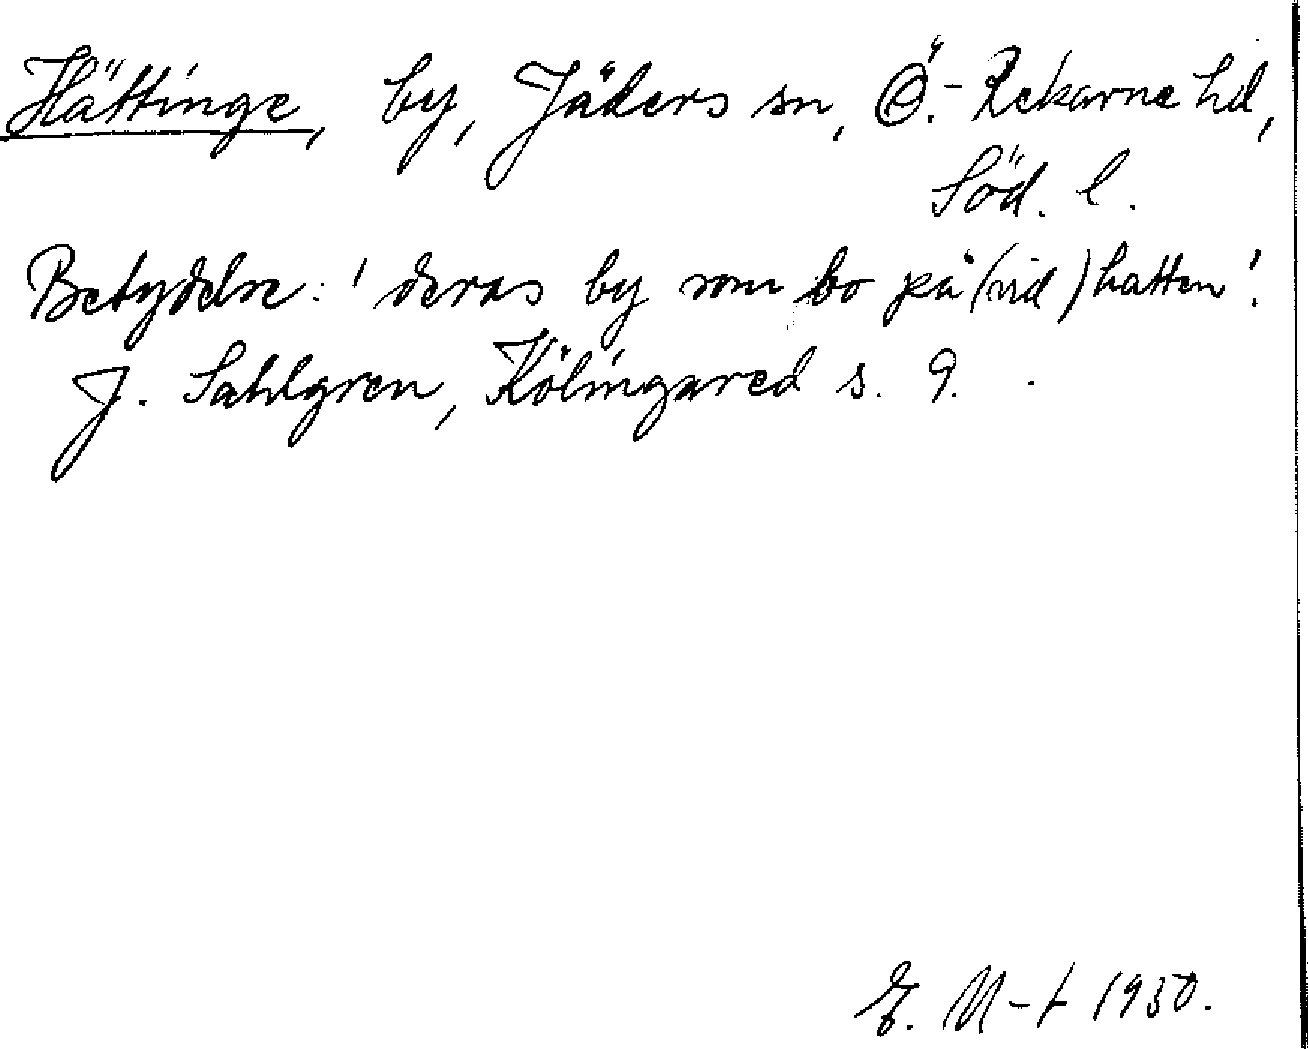 Hättinge, by, Jäders sn, Ö.-Rekarne hd,
Söd. l.
Betydelse: 'deras by som bo på (vid) hatten'.
J. Sahlgren, Kölingared s. 9.
E. M-t 1930.